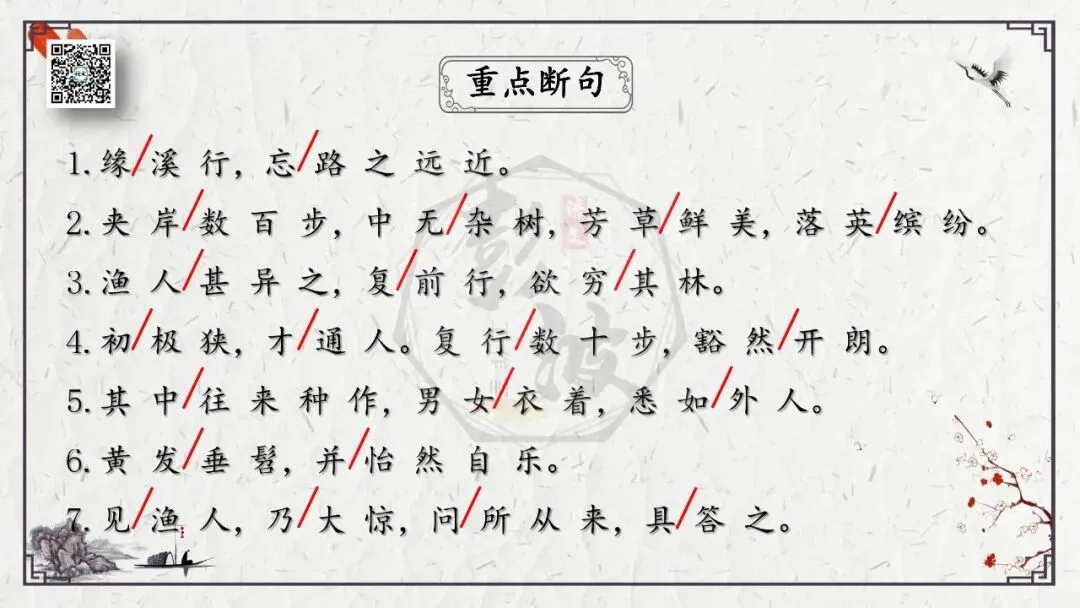 重点断句
1.缘/溪行，忘/路之远近。
2.夹岸/数百步，中无/杂树，芳草/鲜美，落英/缤纷。
3.渔人/甚异之，复/前行，欲穷/其林。
4.初/极狭，才/通人。复行/数十步，豁然/开朗。
5.其中/往来种作，男女/衣着，悉如/外人。
6.黄发/垂髫，并/怡然自乐。
7.见/渔人，乃/大惊，问/所从来，具/答之。